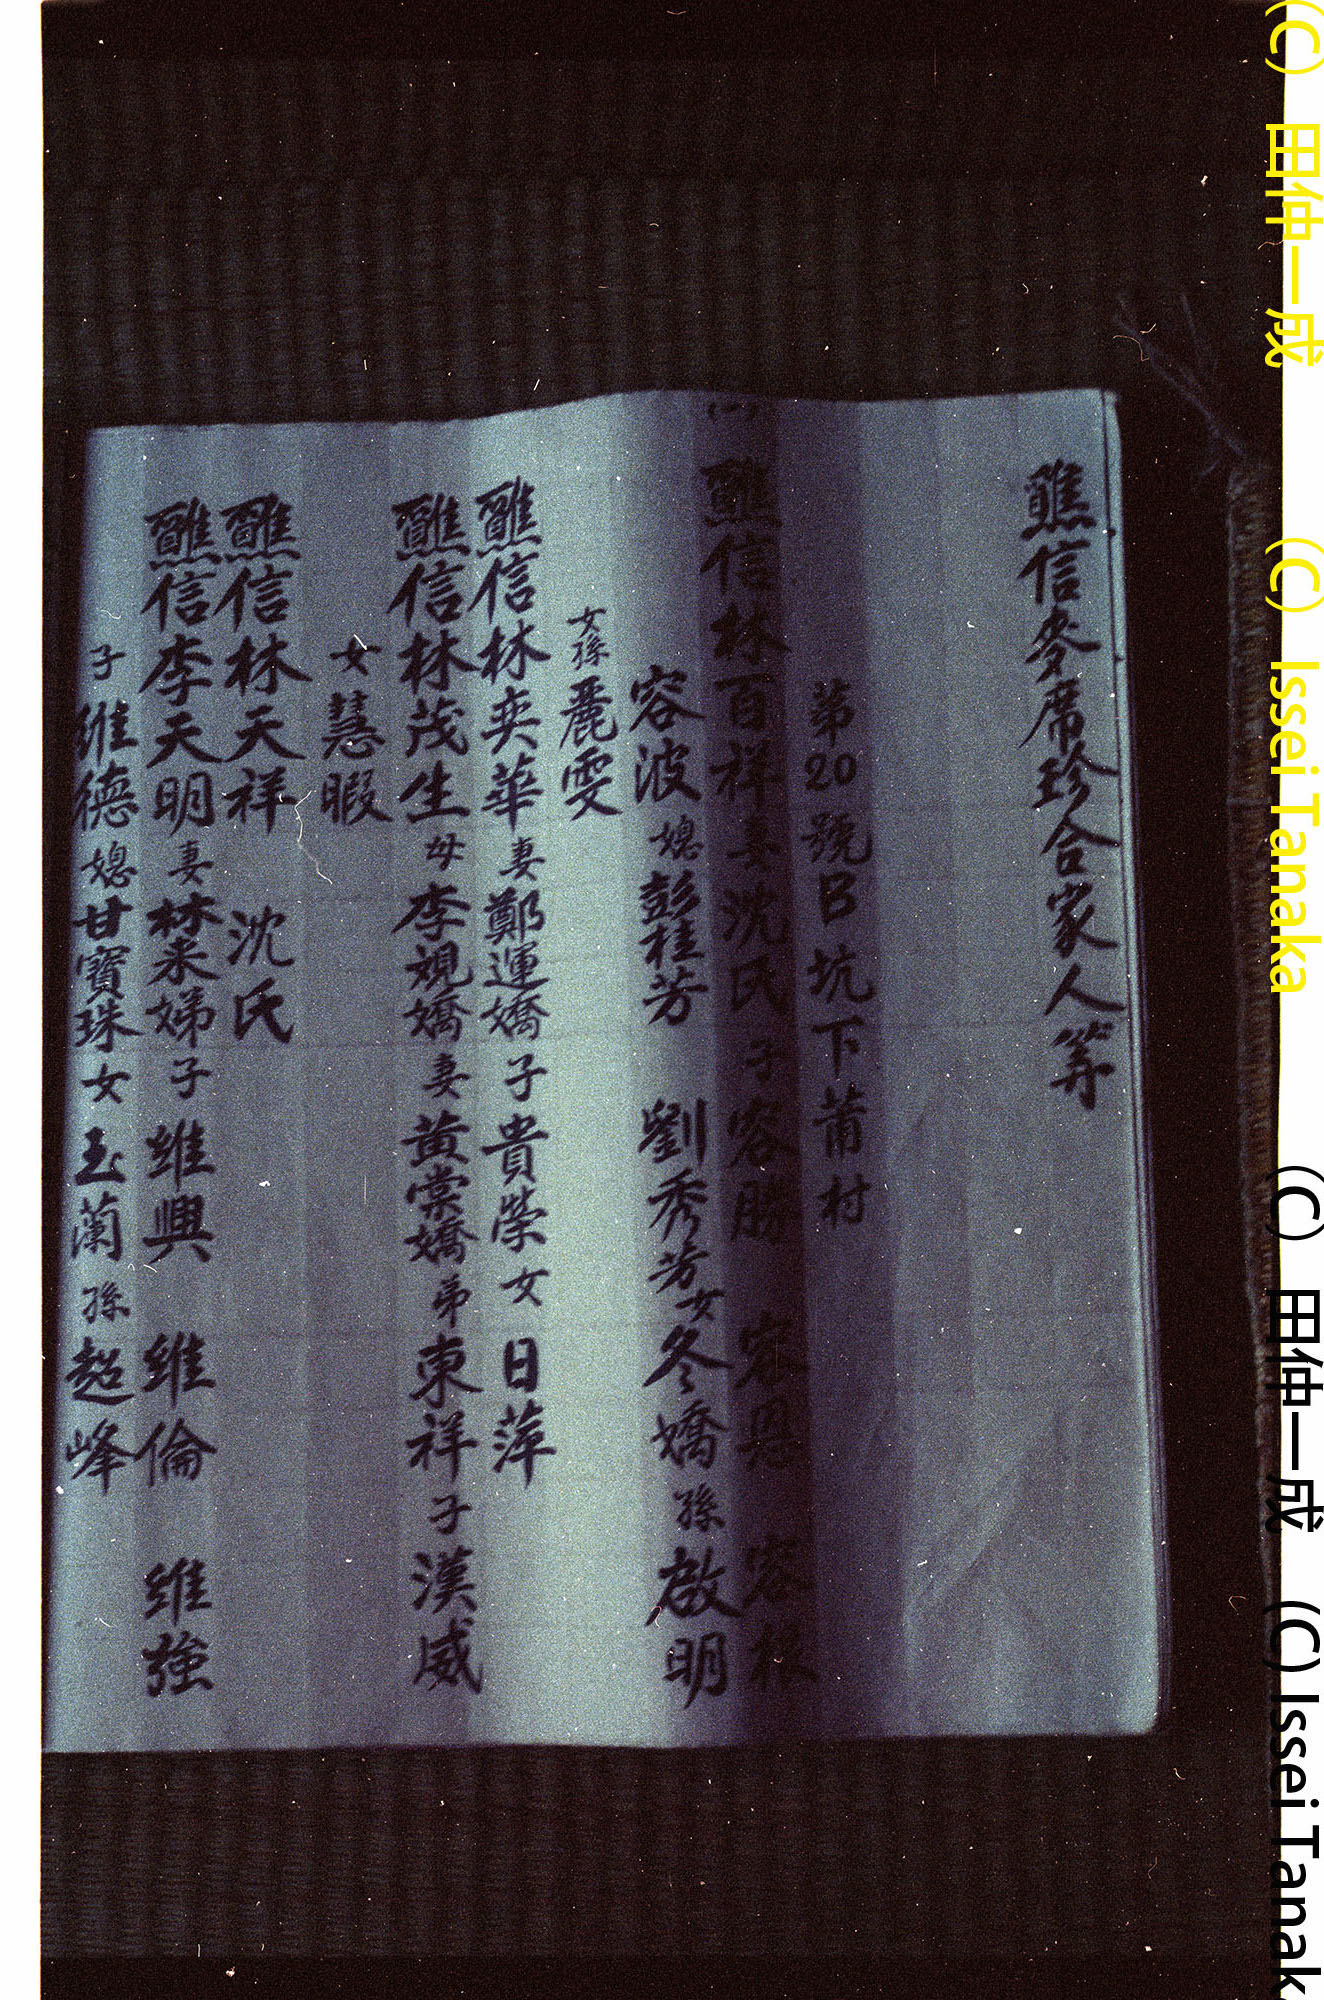 醮信麥席珍合家人等
第20號B坑下莆村
醮信林百祥妻沈氏子容勝 容恩 容根
容波媳彭桂芳 劉秀芳女冬嬌孫啟明
女孫麗雯
醮信林奕華妻鄭運嬌子貴榮女日萍
醮信林茂生母李規嬌妻黃棠嬌弟東祥子漢威
女慧暇
醮信林天祥 沈氏
醮信李天明妻林來娣子維興 維倫 維強
子維德媳甘寶珠女玉蘭孫超峰
(C) 田仲一成 (C) Issei Tanaka
(C) 田仲一成 (C) Issei Tanak